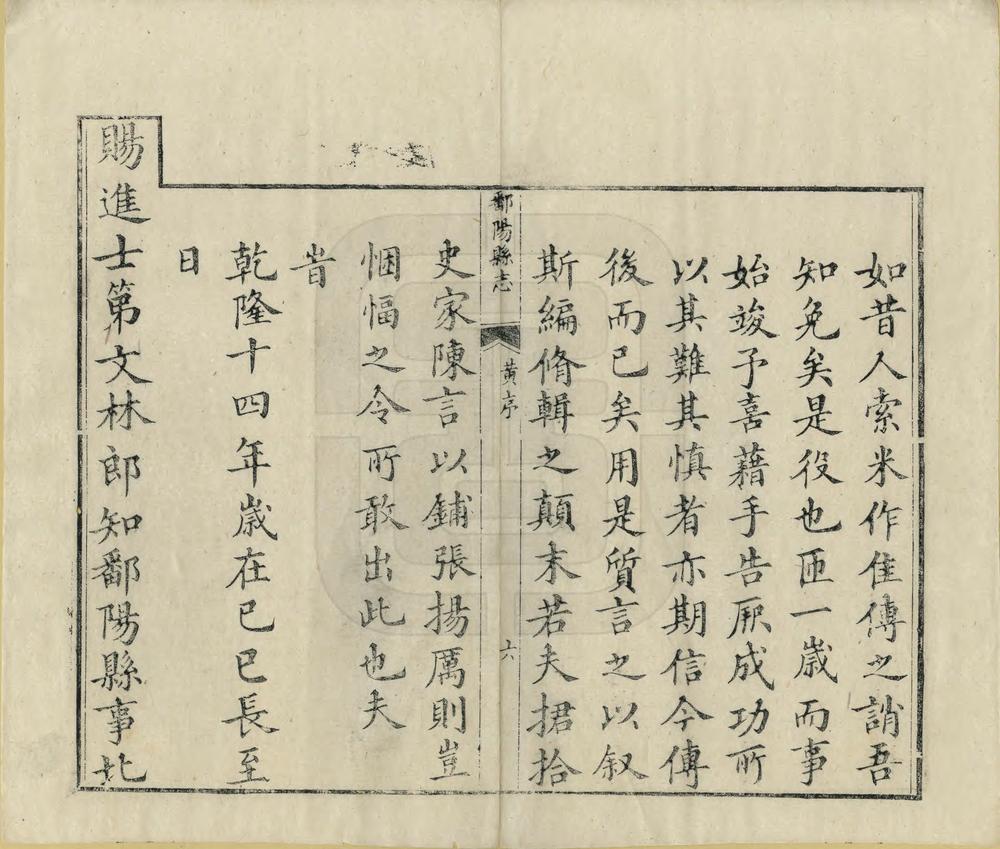 如昔人索米作佳傳之誚吾
知免矣是役也匝一歲而事
始竣予喜藉手告厥成功所
以其難其慎者亦期信今傳
後而已矣用是質言之以叙
斯編脩輯之顛末若夫捃拾
鄱陽縣志
黃序
六
史家陳言以鋪張揚厲則豈
悃愊之令所敢出此也夫
旹
乾隆十四年歲在己巳長至
日
賜進士第文林郎知鄱陽縣事北